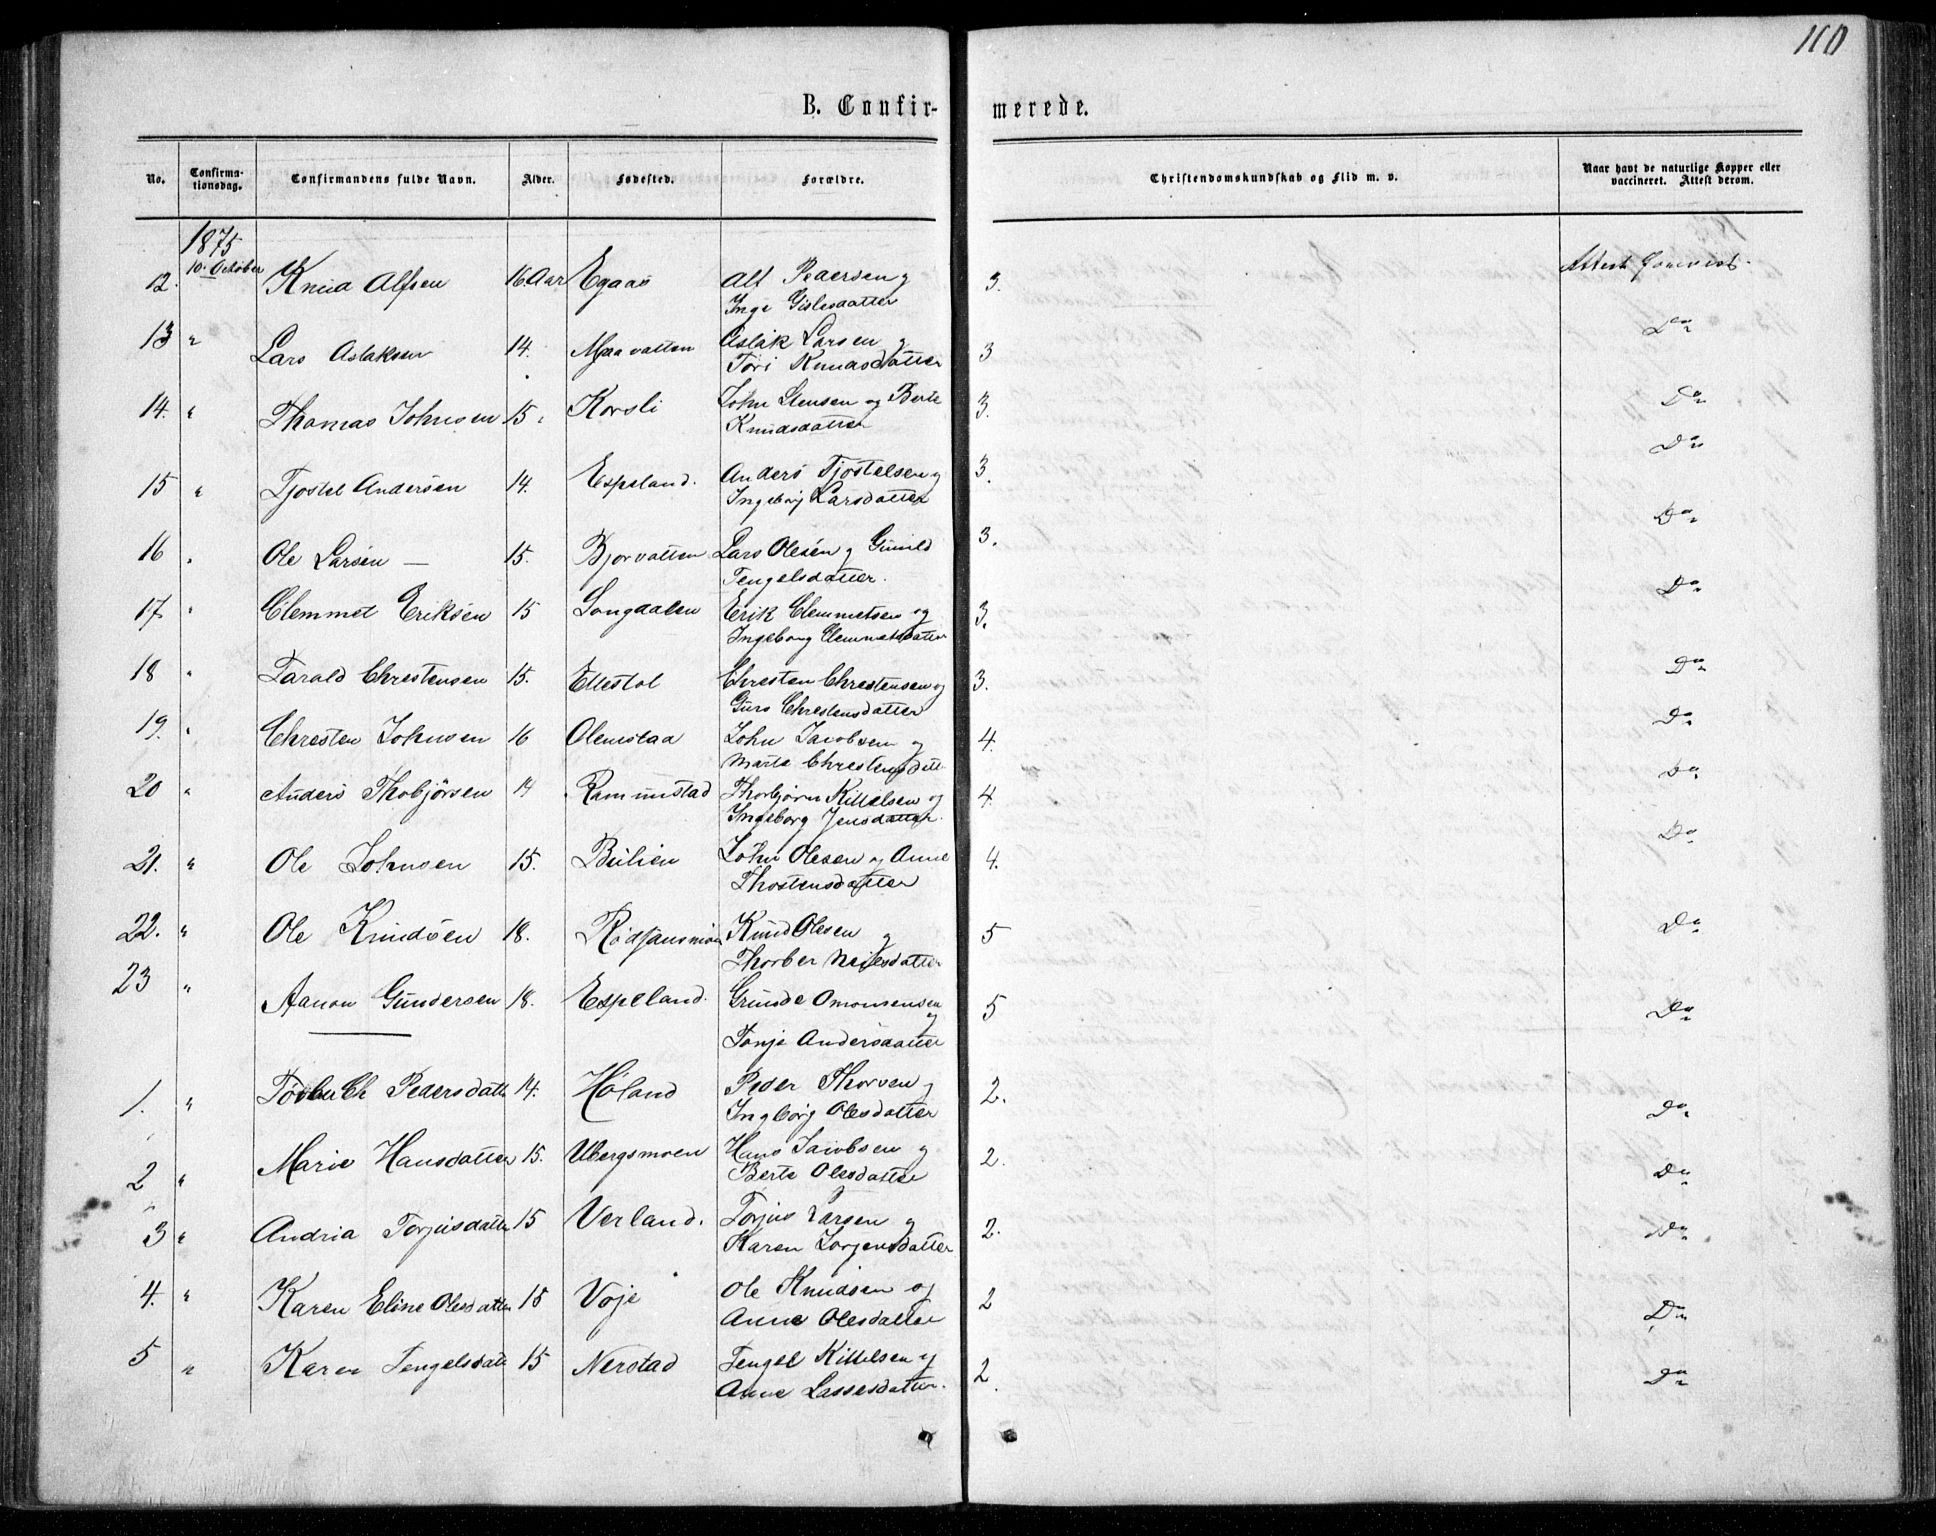 110
B. Confirmerede.
No. Confirmationsdag. Confirmandens fulde Navn. Alder. Fødested. Forældre. Christendomskundskab og Flid m. v. Naar havt de naturlige Kopper eller vaccineret. Attest derom.
1875
12. 10. October Knud Alfsen 16 Aar Egaas Alf Pedersen og 3. Attest
Inge Gislesdatter
13 " Lars Aslaksen 14. Maavatten Aslak Larsen og 3 Do
Tori Knudsdatter
14. " Thomas Johnsen 15. Korsli John Stensen og Berte 3. Do
Knudsdatter
15 " Tjostel Andersen 14. Espeland. Anders Tjostelsen og 3. Do
Ingeborg Larsdatter
16 " Ole Larsen — 15. Bjorvatten Lars Olesen og Gunild 3. Do
Tengelsdatter.
17 " Clemmet Eriksen 15 Songdalen Erik Clemmetsen og 3. Do
Ingeborg Clemmetsdatter
18 " Tarald Chrestensen 15. Ellestol Chresten Chrestensen og 3. Do
Guro Chrestensdatter
19. " Chresten Johnsen 16 Olemstaa John Jacobsen og 4. Do
Marte Chrestensdatt
20 " Anders Thobjörsen 14 Rammestad Thorbjörn Kittelsen og 4. Do
Ingeborg Jensdatter.
21. " Ole Johnsen 15. Bulien John Olesen og Anne 4. Do
Thostensdatter
22. " Ole Knudsen 18. Knud Olesen og 5 Do
Thorber Nilsdatter
23 " Aanon Gundersen 18. Espeland. Gunde Omonsen og 5 Do
Tonje Andersdatter
1. " Pedersdatte 14. Höland Peder Thorsen og 2. Do
Ingborg Olesdatter
2 " Marie Hansdatter 15. Ubergsmoen Hans Jacobsen og 2. Do
Berte Olesdatter
3 " Andria Torjusdatte 15 Verland. Torjus Larsen og 2. Do
Karen Jorgensdatter
4. " Karen Eline Olesdatter 15 Voje Ole Knudsen og 2 Do
Anne Olesdatter
5 " Karen Tengelsdatt 15 Nerstad Tengel Kittelsen og 2. Do
Anne Lassesdatter.